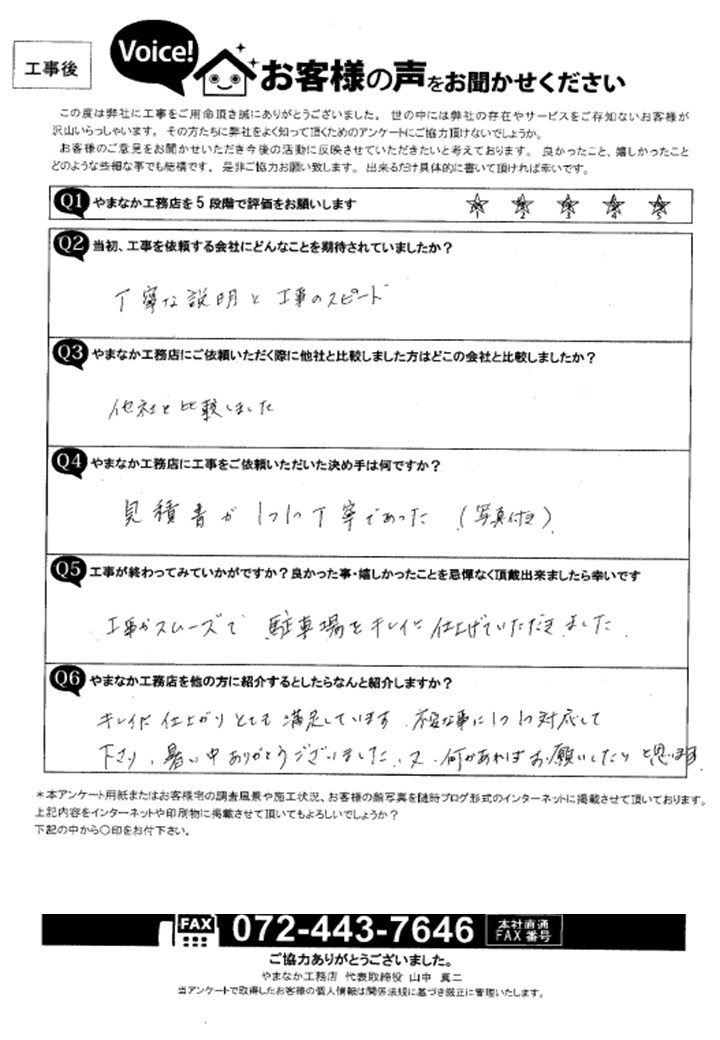 工事後
Voice!
お客様の声をお聞かせください
この度は弊社に工事をご用命頂き誠にありがとうございました。 世の中には弊社の存在やサービスをご存知ないお客様が
沢山いらっしゃいます。 その方たちに弊社をよく知って頂くためのアンケートにご協力頂けないでしょうか。
お客様のご意見をお聞かせいただき今後の活動に反映させていただきたいと考えております。 良かったこと、嬉しかったこと
どのような些細な事でも結構です。 是非ご協力お願い致します。 出来るだけ具体的に書いて頂ければ幸いです。
Q1 やまなか工務店を5段階で評価をお願いします
1 2 3 4 5
Q2 当初、工事を依頼する会社にどんなことを期待されていましたか？
丁寧な説明と工事のスピード
Q3 やまなか工務店にご依頼いただく際に他社と比較しました方はどこの会社と比較しましたか？
他社と比較しました
Q4 やまなか工務店に工事をご依頼いただいた決め手は何ですか？
見積書が1つ1つ丁寧であった (写真付き)
Q5 工事が終わってみていかがですか？良かった事・嬉しかったことを忌憚なく頂戴出来ましたら幸いです
工事がスムーズで 駐車場をキレイに仕上げていただきました.
Q6 やまなか工務店を他の方に紹介するとしたらなんと紹介しますか？
キレイに仕上がりとても満足しています. 不安な事に1つ1つ対応して
下さり、暑い中ありがとうございました. 又、何かあればお願いしたいと思います.
＊本アンケート用紙またはお客様宅の調査風景や施工状況、お客様の顔写真を随時ブログ形式のインターネットに掲載させて頂いております。
上記内容をインターネットや印刷物に掲載させて頂いてもよろしいでしょうか？
下記の中から○印をお付下さい。
FAX 072-443-7646 本社直通
FAX番号
ご協力ありがとうございました。
やまなか工務店 代表取締役 山中 真二
当アンケートで取得したお客様の個人情報は関係法規に基づき厳正に管理いたします。